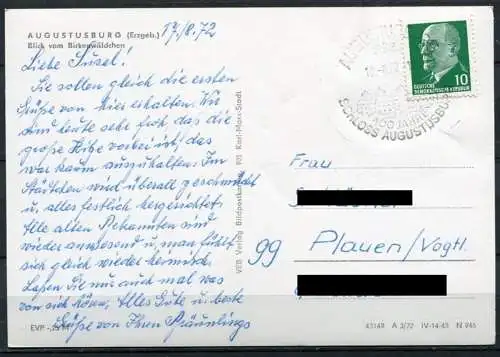 AUGUSTUSBURG (Erzgeb.)
Blick vom Birkenwäldchen
17/8.72
Liebe Susel!
Sie sollen gleich die ersten
Grüße von hier erhalten. Wir
sind heute sehr froh, daß die
große Hitze vorbei ist, das
war kaum auszuhalten. Im
Städtchen wird überall geschmückt
u. alles festlich hergerichtet.
Alle alten Bekannten sind
wieder anwesend u. man fühlt
sich gleich wieder heimisch.
Lassen Sie nur auch mal was
von sich hören. Alles Gute u. beste
Grüße von Ihren Bräunlings
EVP
VEB Verlag Bildpostkarten Karl-Marx-Stadt
400 JAHRE
SCHLOSS AUGUSTUSBURG
10
DEUTSCHE
DEMOKRATISCHE REPUBLIK
Frau
99 Plauen/Vogtl.
A 3/72 IV-14-45 N 946